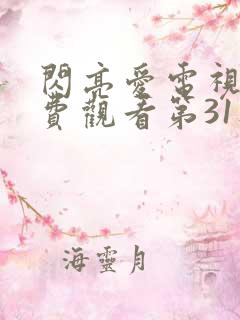 閃亮愛電視
費觀看第31
海靈月